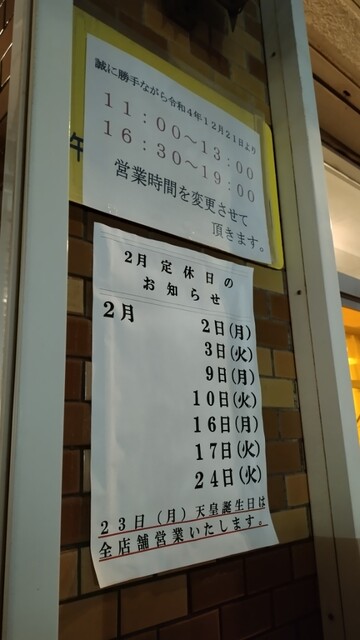 誠に勝手ながら令和4年12月21日より
11：00～13：00
16：30～19：00
営業時間を変更させて
頂きます。
午
2月定休日の
お知らせ
2月 2日(月)
3日(火)
9日(月)
10日(火)
16日(月)
17日(火)
24日(火)
23日(月)天皇誕生日は
全店舗営業いたします。